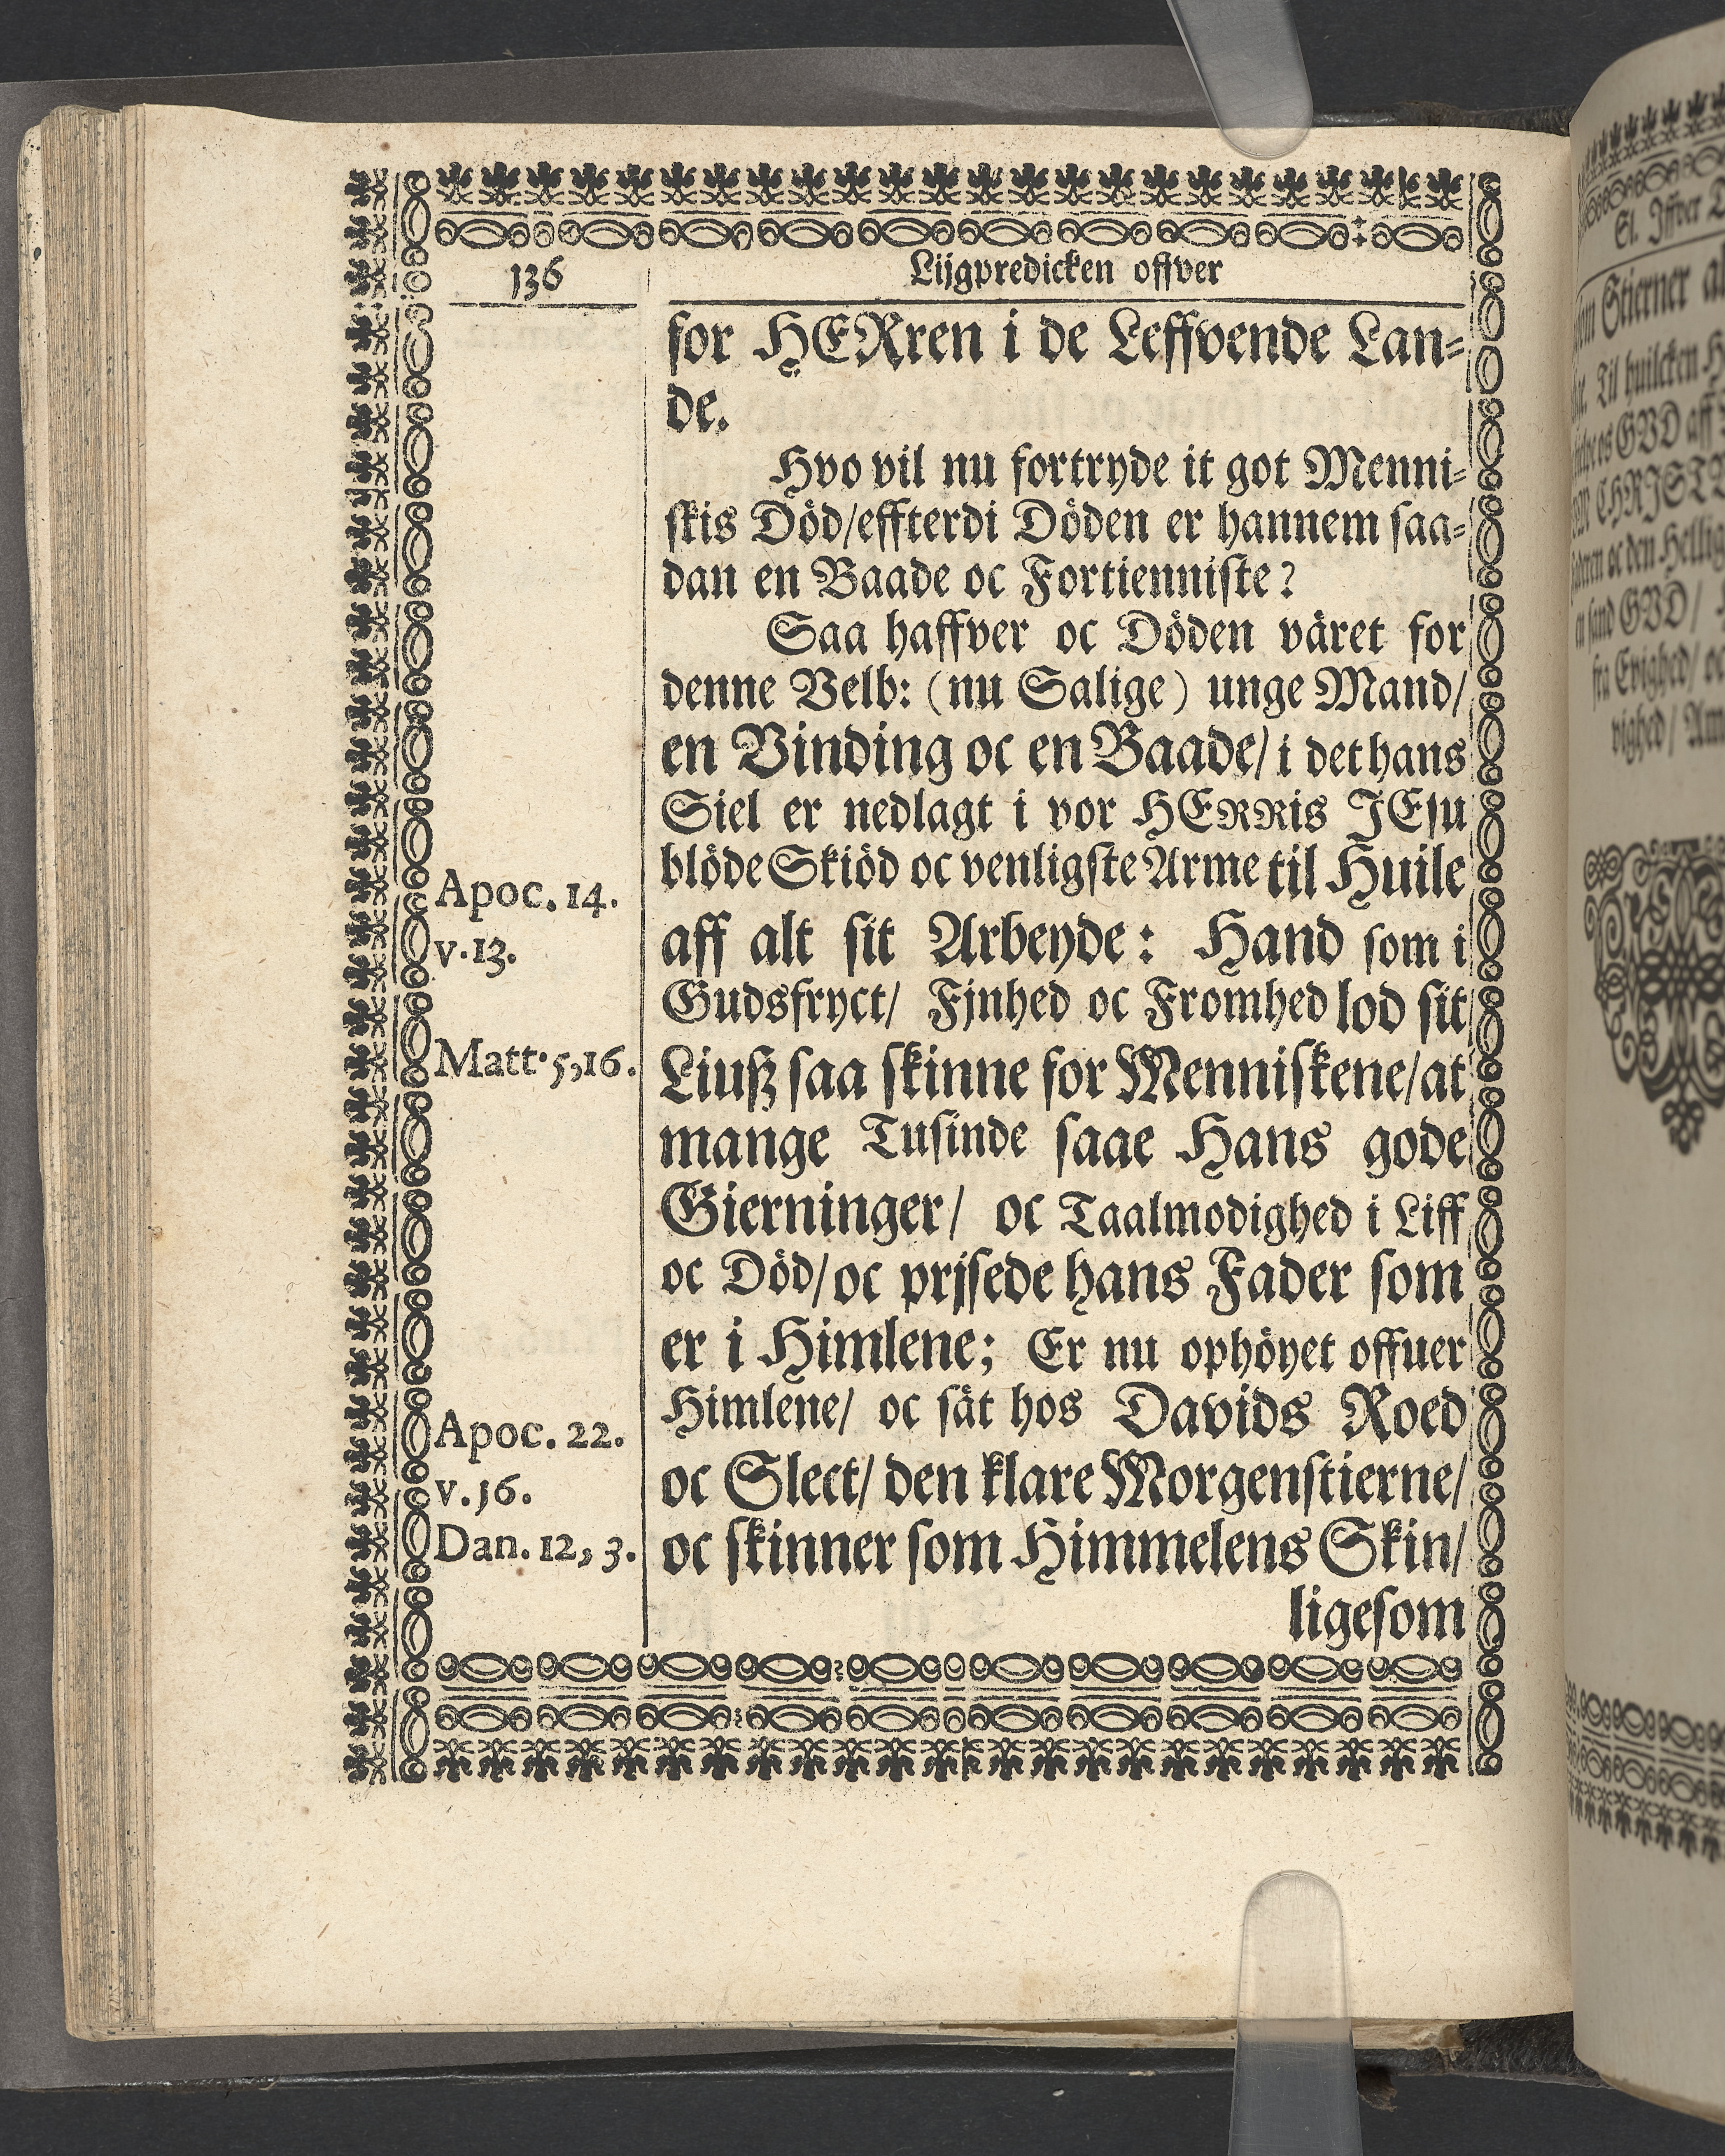 136
Lijgpredicken offver
for HERren i de Leffvende Lan-
de.
Hvo vil nu fortryde it got Menni-
skis Död/effterdi Döden er hannem saa-
dan en Baade oc Fortienniste?
Saa haffver oc Döden väret for
denne Velb: (nu Salige) unge Mand/
en Vinding oc en Baade/ i det hans
Siel er nedlagt i vor HERRis JEsu
blöde Skiöd oc venligste Arme til Huile
Apoc. 14.
aff alt sit Arbeyde: Hand som i
v. 13.
Gudsfryct/ Fjnhed oc Fromhed lod sit
Matt. 5,16.
Liuß saa skinne for Menniskene/at
mange Tusinde saae Hans gode
Gierninger/ oc Taalmodighed i Liff
oc Död/oc prjsede hans Fader som
er i Himlene; Er nu ophöyet offuer
Himlene/ oc sät hos Davids Roed
Apoc. 22.
oc Slect/ den klare Morgenstierne/
v. 16.
Dan. 12, 3.
oc skinner som Himmelens Skin/
ligesom
Sl. Iffver
Stierner
Til huilcken
os GVD aff
CHRIST
oc den Hellig
sand GVD/
fra Evighed/ oc